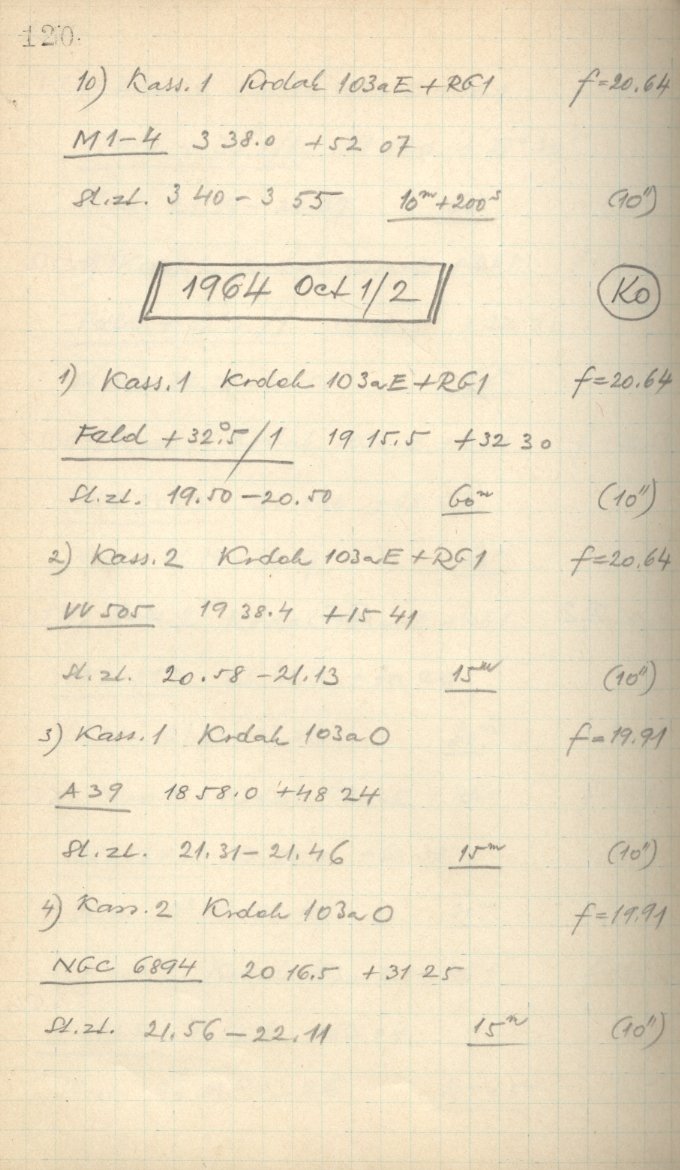 120.
10) Kass. 1 Kodak 103aE + RG1 f=20.64
M1-4 3 38.0 +52 07
St.zt. 3 40 - 3 55 10ᵐ+200ˢ (10")
1964 Oct 1/2 Ko
1) Kass. 1 Kodak 103aE + RG1 f=20.64
Feld +32.°5/1 19 15.5 +32 30
St.zt. 19.50-20.50 60ᵐ (10")
2) Kass. 2 Kodak 103aE + RG1 f=20.64
VV 505 19 38.4 +15 41
St.zt. 20.58-21.13 15ᵐ (10")
3) Kass. 1 Kodak 103aO f=19.91
A 39 18 58.0 +48 24
St.zt. 21.31-21.46 15ᵐ (10")
4) Kass. 2 Kodak 103aO f=19.91
NGC 6894 20 16.5 +31 25
St.zt. 21.56-22.11 15ᵐ (10")